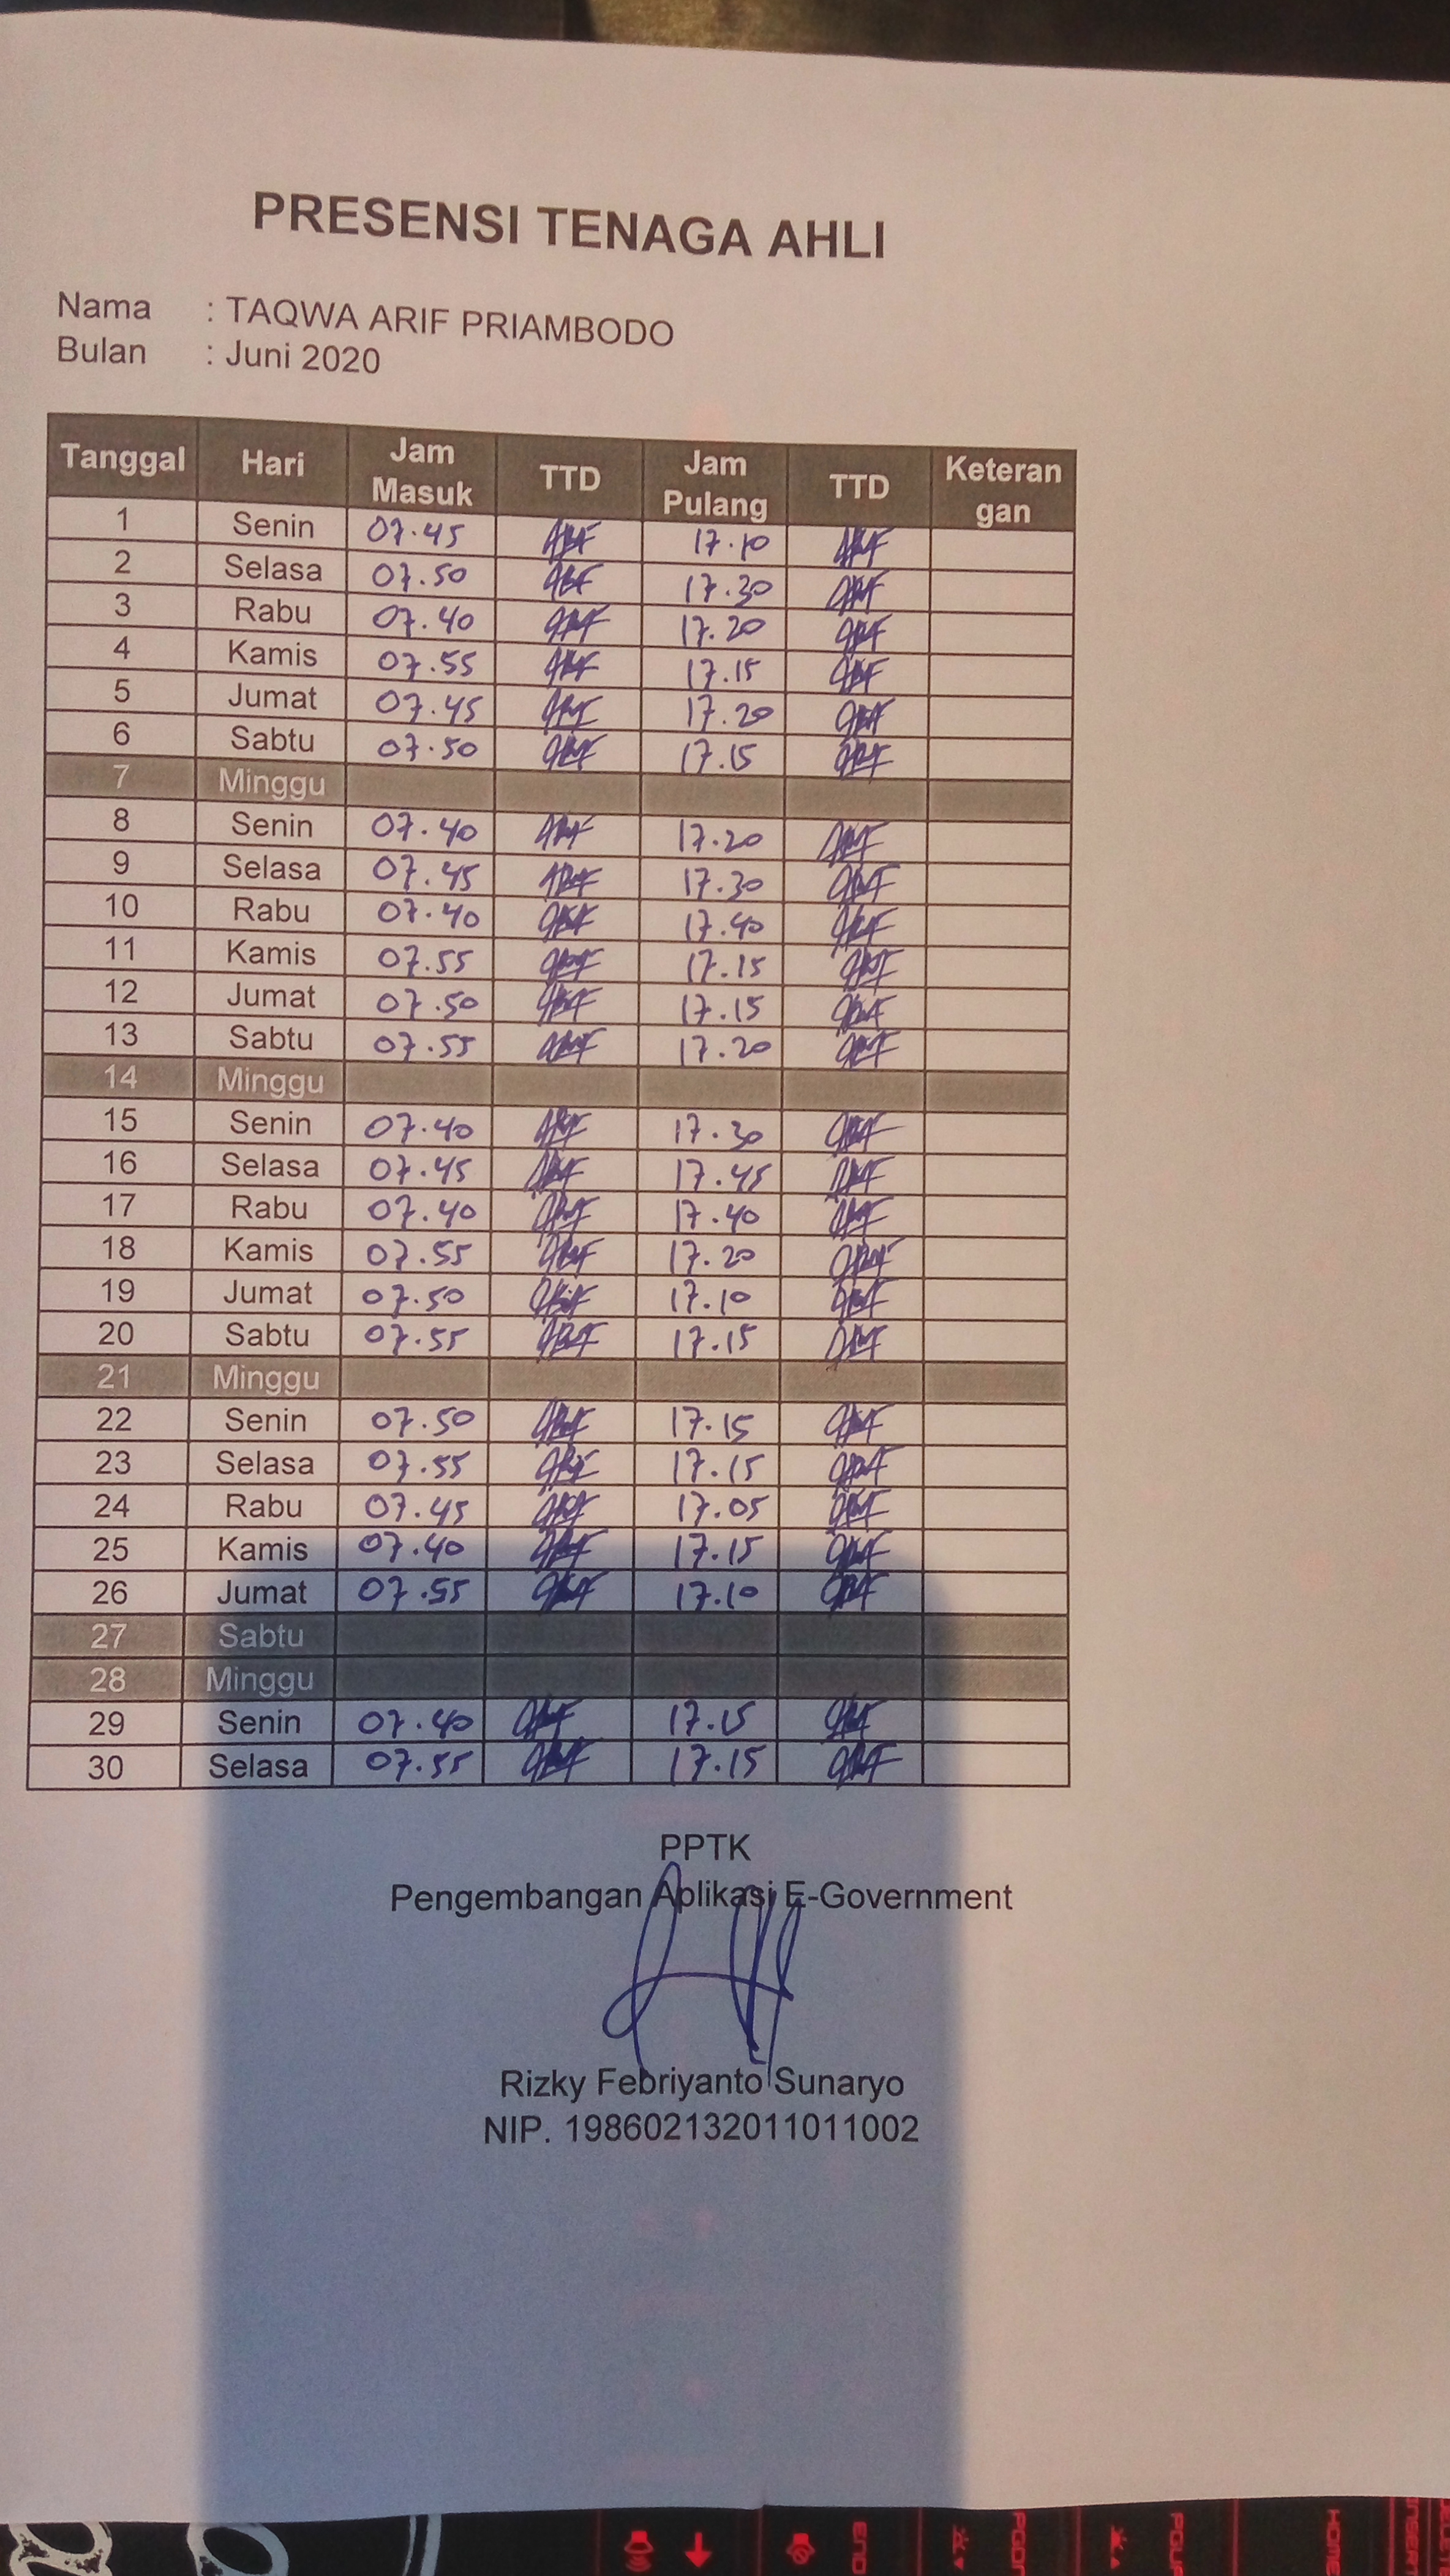 PRESENSI TENAGA AHLI
Nama : TAQWA ARIF PRIAMBODO
Bulan : Juni 2020
Tanggal Hari Jam Masuk TTD Jam Pulang TTD Keteran gan
1 Senin 07.45 17.10
2 Selasa 07.50 17.30
3 Rabu 07.40 17.20
4 Kamis 07.55 17.15
5 Jumat 07.45 17.20
6 Sabtu 07.50 17.15
7 Minggu
8 Senin 07.40 17.20
9 Selasa 07.45 17.30
10 Rabu 07.40 17.40
11 Kamis 07.55 17.15
12 Jumat 07.50 17.15
13 Sabtu 07.55 17.20
14 Minggu
15 Senin 07.40 17.30
16 Selasa 07.45 17.45
17 Rabu 07.40 17.40
18 Kamis 07.55 17.20
19 Jumat 07.50 17.10
20 Sabtu 07.55 17.15
21 Minggu
22 Senin 07.50 17.15
23 Selasa 07.55 17.15
24 Rabu 07.45 17.05
25 Kamis 07.40 17.15
26 Jumat 07.55 17.10
27 Sabtu
28 Minggu
29 Senin 07.40 17.15
30 Selasa 07.55 17.15
PPTK
Pengembangan Aplikasi E-Government
Rizky Febriyanto Sunaryo
NIP. 198602132011011002
END
HOME